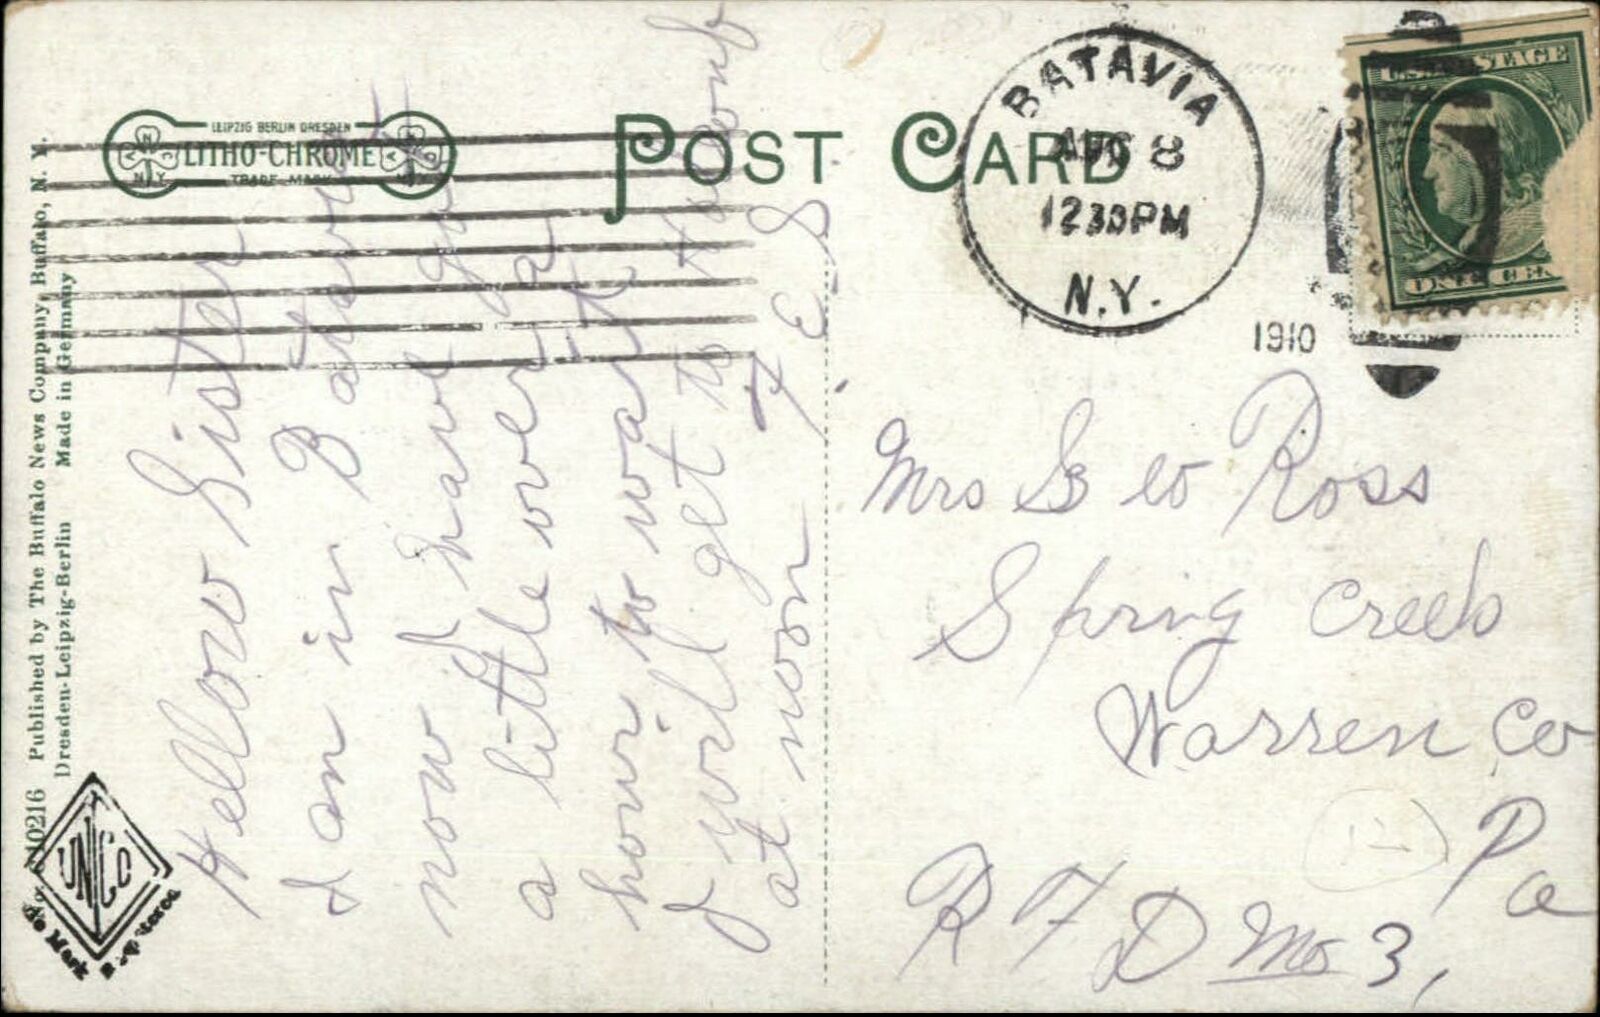 LEIPZIG BERLIN DRESDEN
LITHO-CHROME
TRADE MARK
POST CARD
BATAVIA
AUG 8
1230PM
N.Y.
1910
U.S. POSTAGE
ONE CEN
Hellow Sister
I am in Batavia
now I have got
a little over a
hour to wait
I will get to Lawomb
at noon
H E. S
Mrs Geo Ross
Spring Creek
Warren Co
Pa
R F D No 3,
Published by The Buffalo News Company, Buffalo, N. Y.
Dresden-Leipzig-Berlin Made in Germany
10216
UNCo
Mark